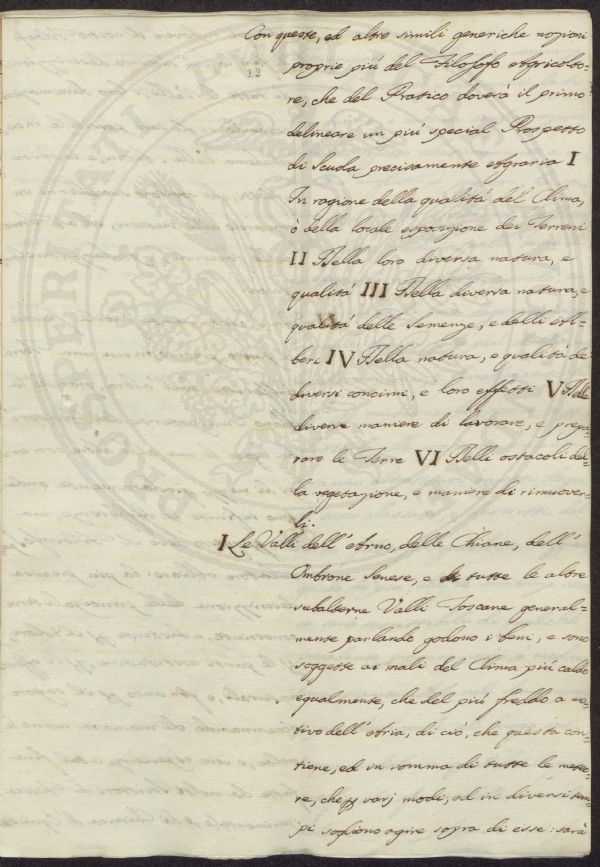 Con queste, ed altre simili generiche nozioni
12
proprie più del Filosofo Agricolto=
re, che del Pratico doverà il primo
delineare un più special Prospetto
di Scuola precisamente Agraria I
In ragione della qualità del Clima,
ò della locale esposizione dei Terreni
II Della loro diversa natura, e
qualità III Della diversa natura, e
qualità delle Semenze, e delli Al=
beri IV Della natura, e qualità de
diversi concimi, e loro effetti V Delle
diverse maniere di lavorare, e prepa=
rare le Terre VI Delli ostacoli del=
la vegetazione, e maniere di rimuover=
li:
I Le Valli dell'Arno, delle Chiane, dell'
Ombrone Senese, e di tutte le altre
subalterne Valli Toscane general=
mente parlando godono i beni, e sono
soggette ai mali del Clima più caldo
egualmente, che del più freddo a mo=
tivo dell'Aria, di ciò, che questa con=
tiene, ed in somma di tutte le meteo=
re, che in varj modi, ed in diversi tem=
pi sogliono agire sopra di esse: sarà
PROSPERITATI